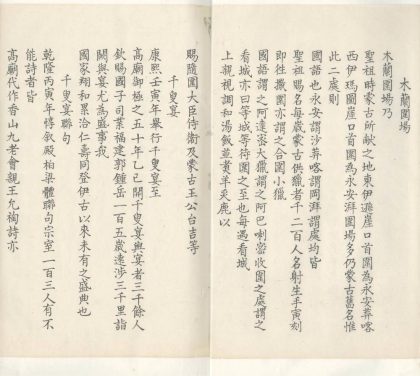 木蘭圍場
木蘭圍場乃
聖祖時蒙古所獻之地東伊遜崖口首圍為永安莽喀
西伊瑪圖崖口首圍為永安湃圍場多仍蒙古舊名惟
此二處則
國語也永安謂沙莽喀謂岡湃謂處均皆
聖祖賜名每歲蒙古供獵者千二百人名射生手寅刻
即往撒圍亦謂之合圍小獵
國語謂之阿達密大獵謂之阿巴喇當收圍之處謂之
看城亦曰等城等待圍之至也每遇看城
上親視調和湯飯並賞羊炙鹿以
賜隨圍大臣侍衛及蒙古王公台吉等
千叟宴
康熙壬寅年舉行千叟宴至
高廟御極之五十年乙巳開千叟宴與宴者三千餘人
欽賜國子司業福建郭鍾岳一百五歲遠涉三千里詣
闕與宴尤為盛事我
國家翔和累洽仁壽同登伊古以來未有之盛典也
千叟宴聯句
乾隆丙寅年惇敘殿柏梁體聯句宗室一百三人有不
能詩者皆
高廟代作香山九老會親王允祹詩亦